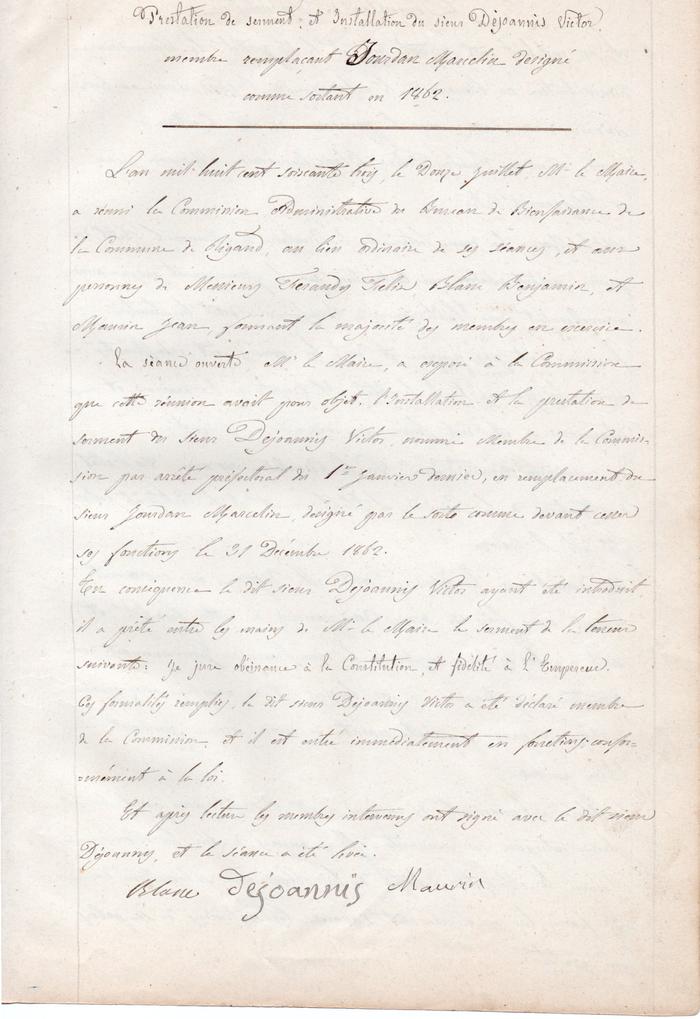 Prestation de serment, et Installation du sieur Déjoannis Victor,
membre remplaçant Jourdan Marcelin designé
comme sortant en 1862.
L'an mil huit cent soixante trois, le Douze juillet, Mr le Maire,
a réuni la Commission Administrative du Bureau de Bienfaisance de
la Commune de Rigaud, au lieu ordinaire de ses séances, et aux
personnes de Messieurs Ferandy Félix Blanc Benjamin, et
Maurin Jean, formant la majorité des membres en exercice.
La séance ouverte Mr le Maire, a exposé à la Commission
que cette réunion avait pour objet, l'Installation et la prestation de
serment du sieur Déjoannis Victor, nommé Membre de la Commis-
sion par arrêté préfectoral du 1er Janvier dernier, en remplacement du
sieur Jourdan Marcelin, désigné par le sorte comme devant cesser
ses fonctions le 31 Décembre 1862.
En conséquence le dit sieur Dejoannis Victor ayant été introduit
il a prêté entre les mains de Mr le Maire le serment de la teneur
suivante: Je jure obéissance à la Constitution, et fidélité à l'Empereur.
Ces formalités remplies, le dit sieur Dejoannis Victor a été déclaré membre
de la Commission, et il est entré immédiatement en fonctions confor-
mément à la loi.
Et après lecture les membres intervenus ont signé avec le dit sieur
Déjoannis, et la séance a été levée.
Blanc Déjoannis Maurin